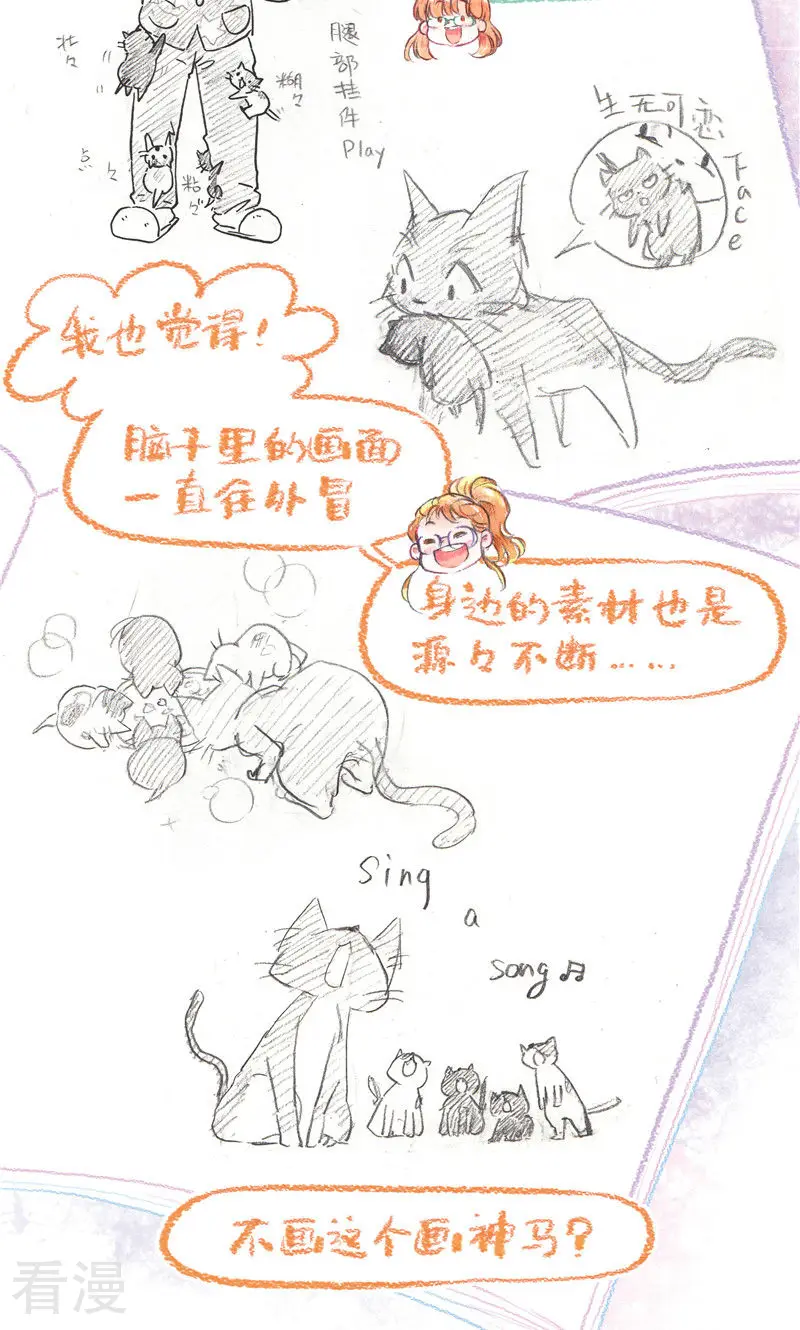 粘々
糊々
点々
粘々
腿部挂件
Play
生无可恋
Face
我也觉得!
脑子里的画面
一直往外冒
身边的素材也是
源々不断……
Sing
a
song♫
不画这个画神马?
看漫